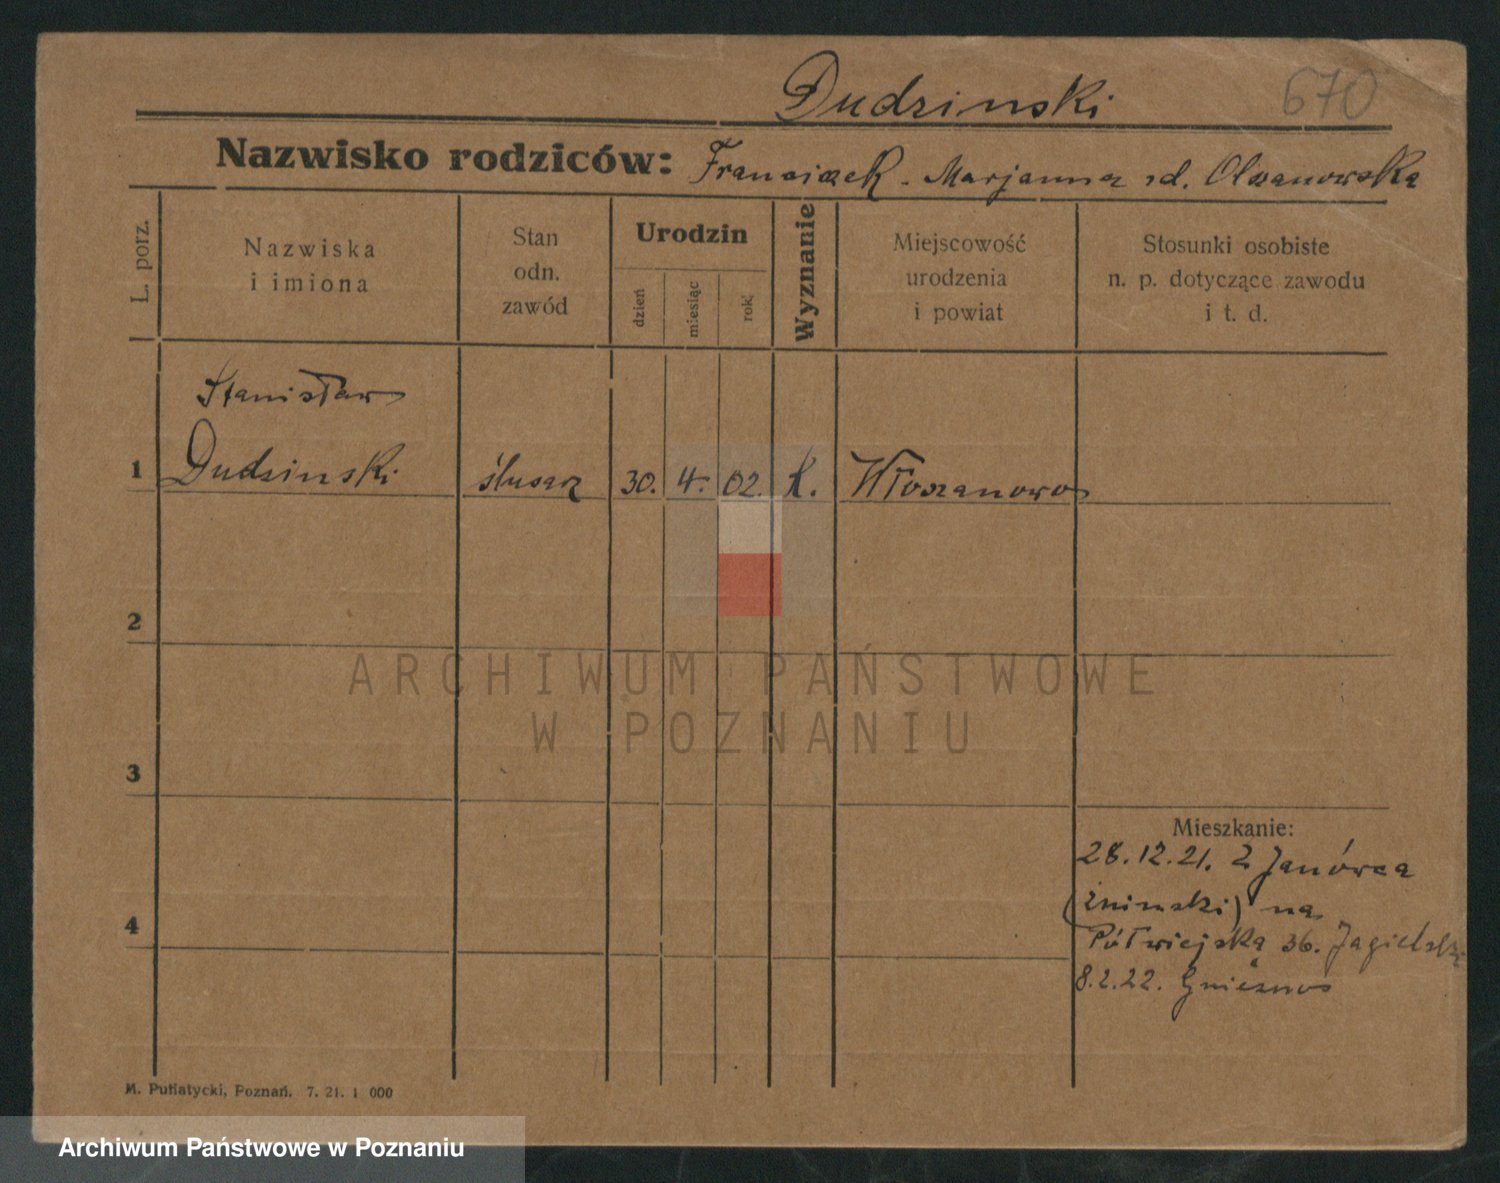 Dudzinski
670
Nazwisko rodziców: Franciszek - Marjanna zd. Olszanowska
L. porz.
Nazwiska
i imiona
Stan
odn.
zawód
Urodzin
dzień
miesiąc
rok
Wyznanie
Miejscowość
urodzenia
i powiat
Stosunki osobiste
n. p. dotyczące zawodu
i t. d.
Stanisław
1 Dudzinski ślusarz 30. 4. 02. k. Włoszanowo
2
ARCHIWUM PAŃSTWOWE
W POZNANIU
3
Mieszkanie:
28.12.21. z Janówca
(żninski) na
4
Półwiejska 36. Jagielska
8.2.22. Gniezno
M. Putiatycki, Poznań. 7. 21. 1 000
Archiwum Państwowe w Poznaniu